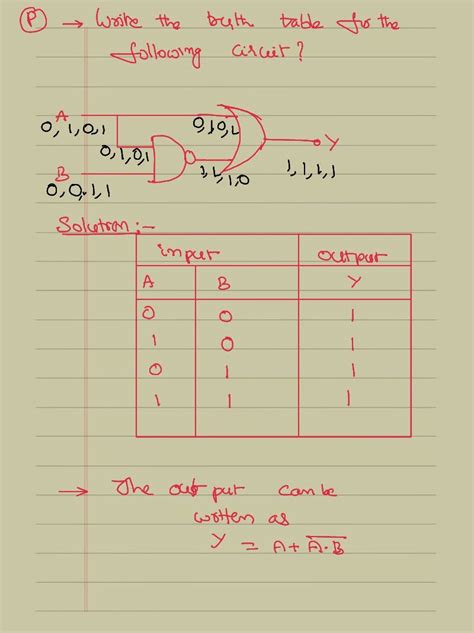 P → Write the truth table for the
following circuit?
A
0, 1, 0, 1
0, 1, 0, 1
0, 1, 0, 1
Y
B
1, 1, 1, 0
1, 1, 1, 1
0, 0, 1, 1
Solution :-
input output
A B Y
0 0 1
1 0 1
0 1 1
1 1 1
→ The out put can be
written as
Y = A + \overline{A·B}